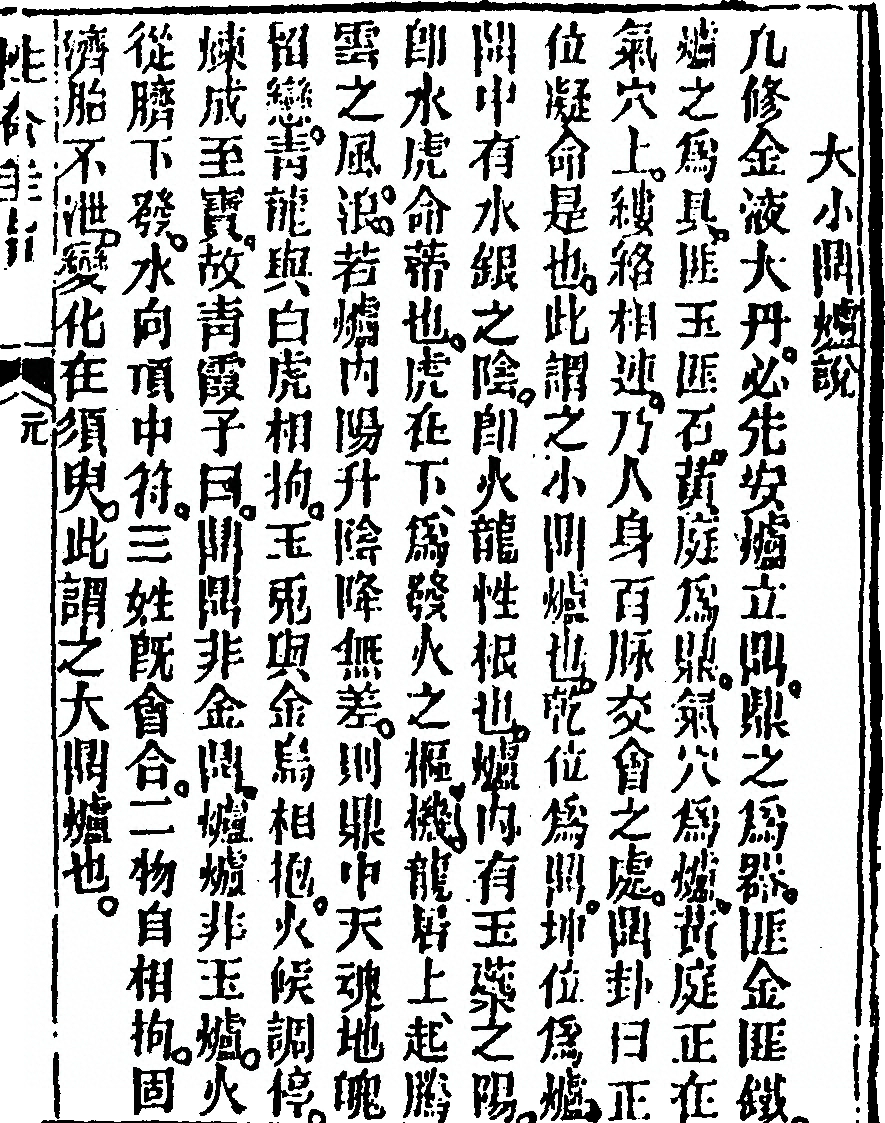 大小鼎爐說
凡修金液大丹。必先安爐立鼎。鼎之爲器。匪金匪鐵。
爐之爲具。匪玉匪石。黃庭爲鼎。氣穴爲爐。黃庭正在
氣穴上。縷絡相連。乃人身百脉交會之處。鼎卦曰正
位凝命是也。此謂之小鼎爐也。乾位爲鼎。坤位爲爐。
鼎中有水銀之陰。卽火龍性根也。爐內有玉蘂之陽。
卽水虎命蒂也。虎在下、爲發火之樞機。龍居上、起騰
雲之風浪。若爐內陽升陰降無差。則鼎中天魂地魄
留戀。靑龍與白虎相拘。玉兎與金烏相抱。火候調停。
煉成至寶。故靑霞子曰。鼎鼎非金鼎。爐爐非玉爐。火
從臍下發。水向頂中符。三姓旣會合。二物自相拘。固
濟胎不泄。變化在須臾。此謂之大鼎爐也。
元